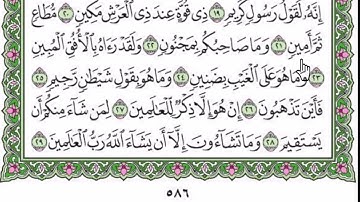 إِنَّهُۥ لَقَوْلُ رَسُولٍ كَرِيمٍ ١٩ ذِى قُوَّةٍ عِندَ ذِى ٱلْعَرْشِ مَكِينٍ ٢٠ مُّطَاعٍ
ثَمَّ أَمِينٍ ٢١ وَمَا صَاحِبُكُم بِمَجْنُونٍ ٢٢ وَلَقَدْ رَءَاهُ بِٱلْأُفُقِ ٱلْمُبِينِ
٢٣ وَمَا هُوَ عَلَى ٱلْغَيْبِ بِضَنِينٍ ٢٤ وَمَا هُوَ بِقَوْلِ شَيْطَٰنٍ رَّجِيمٍ ٢٥
فَأَيْنَ تَذْهَبُونَ ٢٦ إِنْ هُوَ إِلَّا ذِكْرٌ لِّلْعَٰلَمِينَ ٢٧ لِمَن شَآءَ مِنكُمْ أَن
يَسْتَقِيمَ ٢٨ وَمَا تَشَآءُونَ إِلَّآ أَن يَشَآءَ ٱللَّهُ رَبُّ ٱلْعَٰلَمِينَ ٢٩
٥٨٦